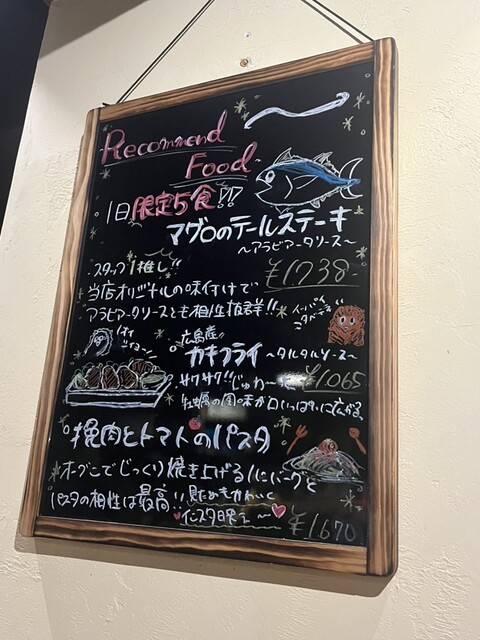 Recommend
Food
1日限定5食!!
マグロのテールステーキ
～アラビアータソース～
¥1738-
スタッフ1推し!!
当店オリジナルの味付けで
アラビアータソースとも相性抜群!!
広島産
カキフライ ～タルタルソース～
サクサク!!じゅわ～ ¥1,065
牡蠣の風味が口いっぱいに広がる。
挽肉とトマトのパスタ
オーブンでじっくり焼き上げるハンバーグと
パスタの相性は最高!!
インスタ映え
¥1670